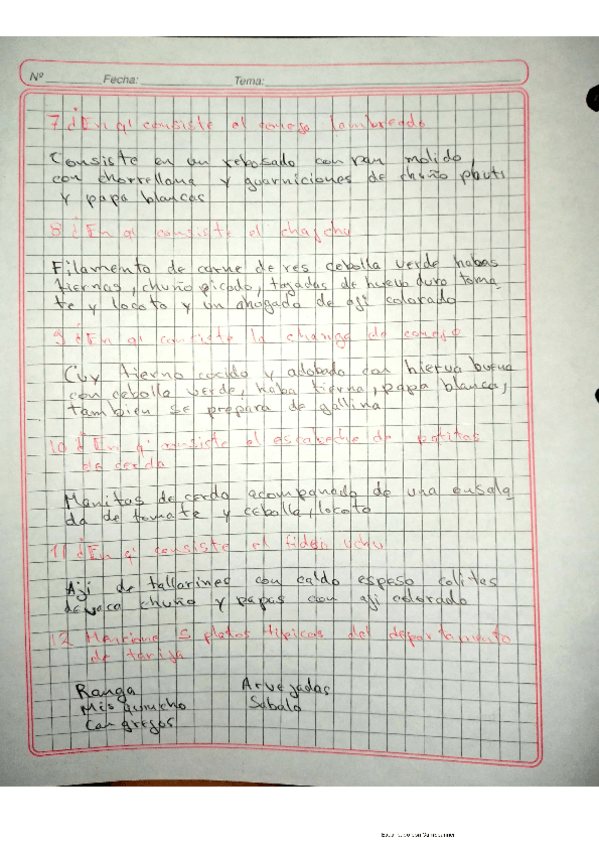 Nº Fecha: Tema:
7 ¿En q' consiste el conejo lambreado
Consiste en un rebosado con pan molido,
con chorrellana y guarniciones de chuño phuti
y papa blancas
8 ¿En q' consiste el chajchu
Filamento de carne de res cebolla verde habas
tiernas, chuño picado, tajadas de huevo duro toma
te y locoto y un ahogado de aji colorado
9 ¿En q' consiste la changa de conejo
Cuy tierno cocido y adobado con hierva buena
con cebolla verde, haba tierna, papa blanca,
tambien se prepara de gallina
10 ¿En q' consiste el escabeche de patitas
de cerdo
Manitas de cerdo acompanado de una ensala
da de tomate y cebolla, locoto
11 ¿En q' consiste el fideo uchu
Aji de tallarines con caldo espeso colites
de vaca chuño y papas con aji colorado
12 Mencione 5 platos tipicos del departamento
de tarija
Ranga Arvejadas
Misquincho Sabalo
Cangrejos